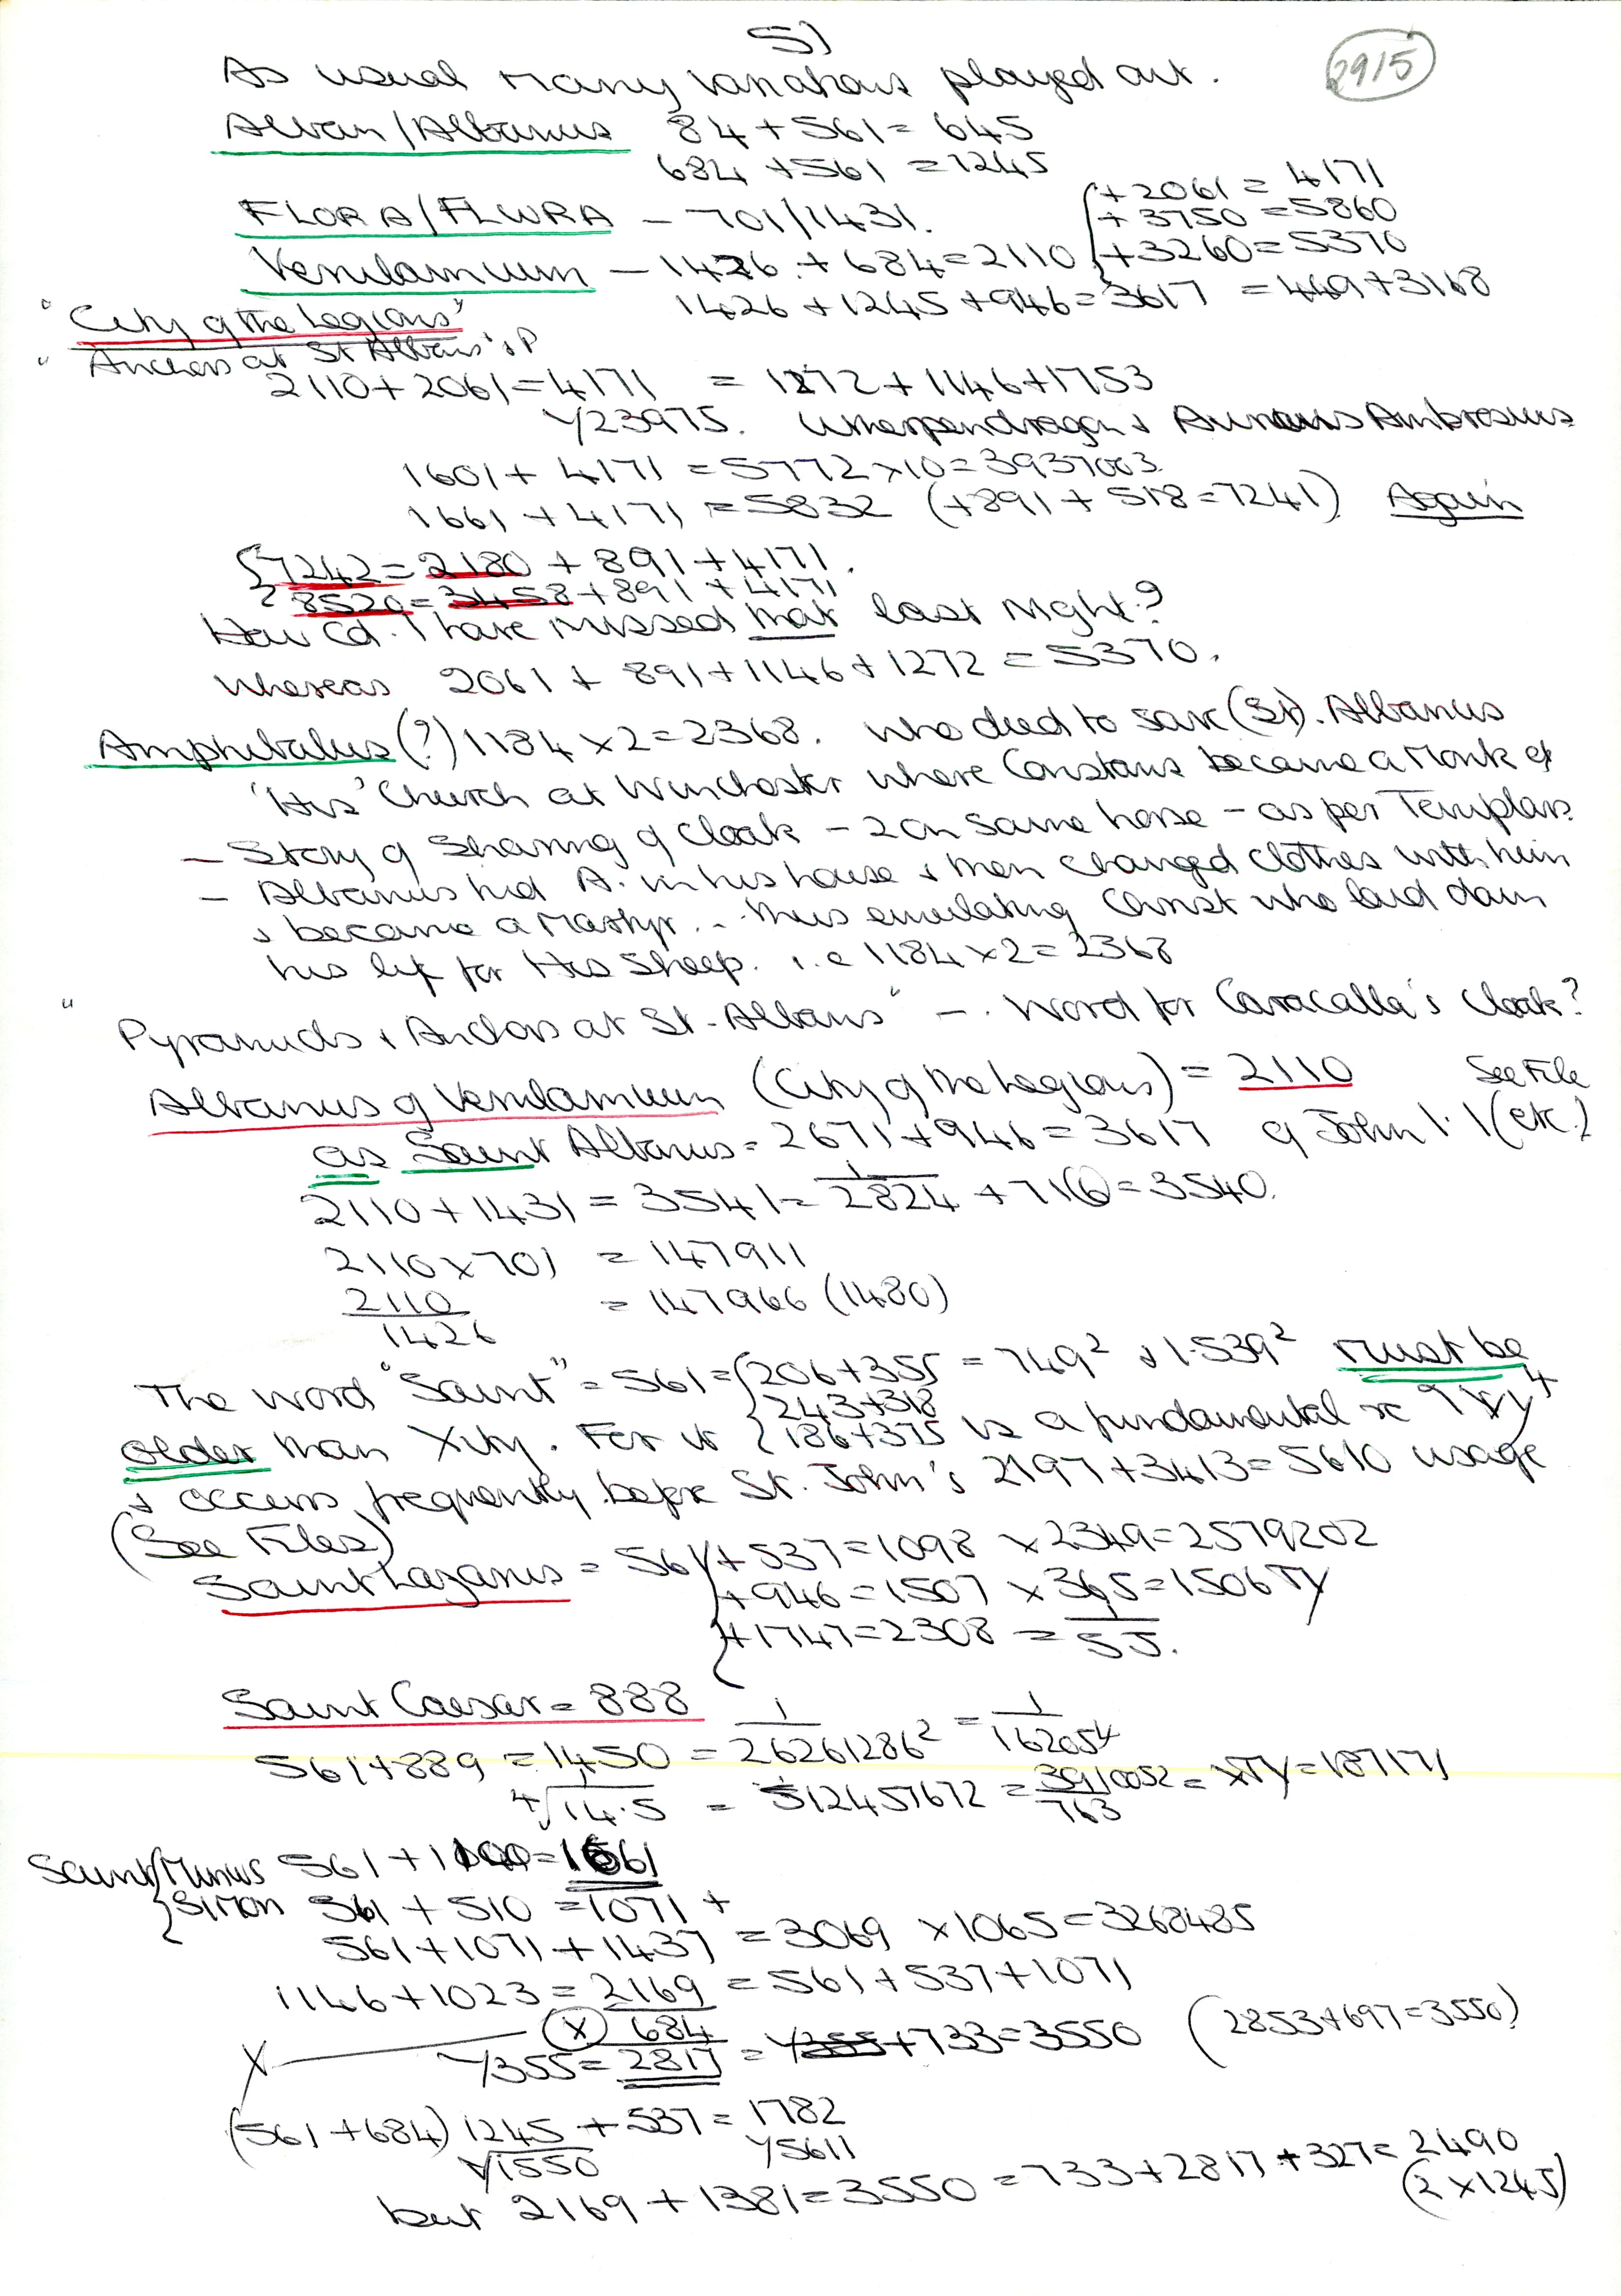 5)
2915
As usual many variations played out.
Alban/Albanus 84 + 561 = 645
684 + 561 = 1245
FLORA/FLWRA - 701/1431.
{+ 2061 = 4171
+ 3750 = 5860
+ 3260 = 5370
Verulamium - 1426 + 684 = 2110
1426 + 1245 + 946 = 3617 = 449 + 3168
"City of the Legions"
" Anchors at St Albans" & P
2110 + 2061 = 4171 = 1272 + 1146 + 1753
Y23975. Utherpendragon & Aurelius Ambrosius
1601 + 4171 = 5772 x 10 = 3937003.
1661 + 4171 = 5832 (+891 + 518 = 7241) Again
{7242 = 2180 + 891 + 4171.
{8520 = 3458 + 891 + 4171
How cd. I have missed that last night?
Whereas 2061 + 891 + 1146 + 1272 = 5370.
Amphibalus (?) 1184 x 2 = 2368. who died to save (St). Albanus
'His' Church at Winchester where Constans became a Monk
- Story of Sharing of Cloak - 2 on same horse - as per Templars.
- Albanus hid A. in his house & then changed clothes with him
& became a martyr. .. thus emulating Christ who laid down
his life for His Sheep. i.e 1184 x 2 = 2368
"Pyramids & Anchors at St. Albans" -. Word for Caracalla's Cloak?
Albanus of Verulamium (City of the Legions) = 2110 See File
as Saint Albanus = 2671 + 946 = 3617 of John 1.1 (etc.)
2110 + 1431 = 3541 = 1/2824 + 716 = 3540.
2110 x 701 = 147911
2110/1426 = 147966 (1480)
The word "Saint" = 561 = {206 + 355 = 749² & 1.539² must be
{243 + 318
older than Xity. For it {186 + 375 is a fundamental re
& occurs frequently before St. John's 2197 + 3413 = 5610 usage
(See Files)
Saint Lazarus = 561 {+ 537 = 1098 x 2349 = 2579202
+ 946 = 1507 x 365 = 1506 TY
+ 1747 = 2308 = 1/55.
Saint Caesar = 888
561 + 889 = 1450 = 1/26261286² = 1/162054
4√14.5 = 512457672 = 3910052/763 = xTY = 187171
Saint {Minus 561 + 1100 = 1661
{Simon 561 + 510 = 1071 +
561 + 1071 + 1437 = 3069 x 1065 = 3268485
1146 + 1023 = 2169 = 561 + 537 + 1071
X (X) 684
Y355 = 2817 = Y355 + 733 = 3550 (2853 + 697 = 3550)
(561 + 684) 1245 + 537 = 1782
Y1550 Y5611
but 2169 + 1381 = 3550 = 733 + 2817 + 327 = 2490
(2 x 1245)